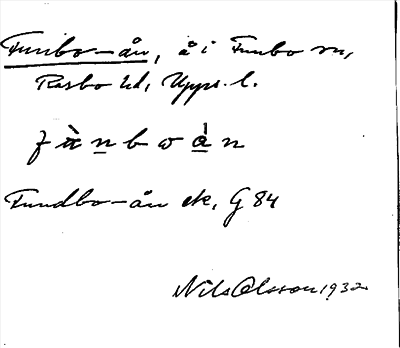 Funbo-ån, å i Funbo sn,
Rasbo hd, Upps. l.
fùnbωån
Fundbo-ån ek, G 84
Nils Olsson 1932